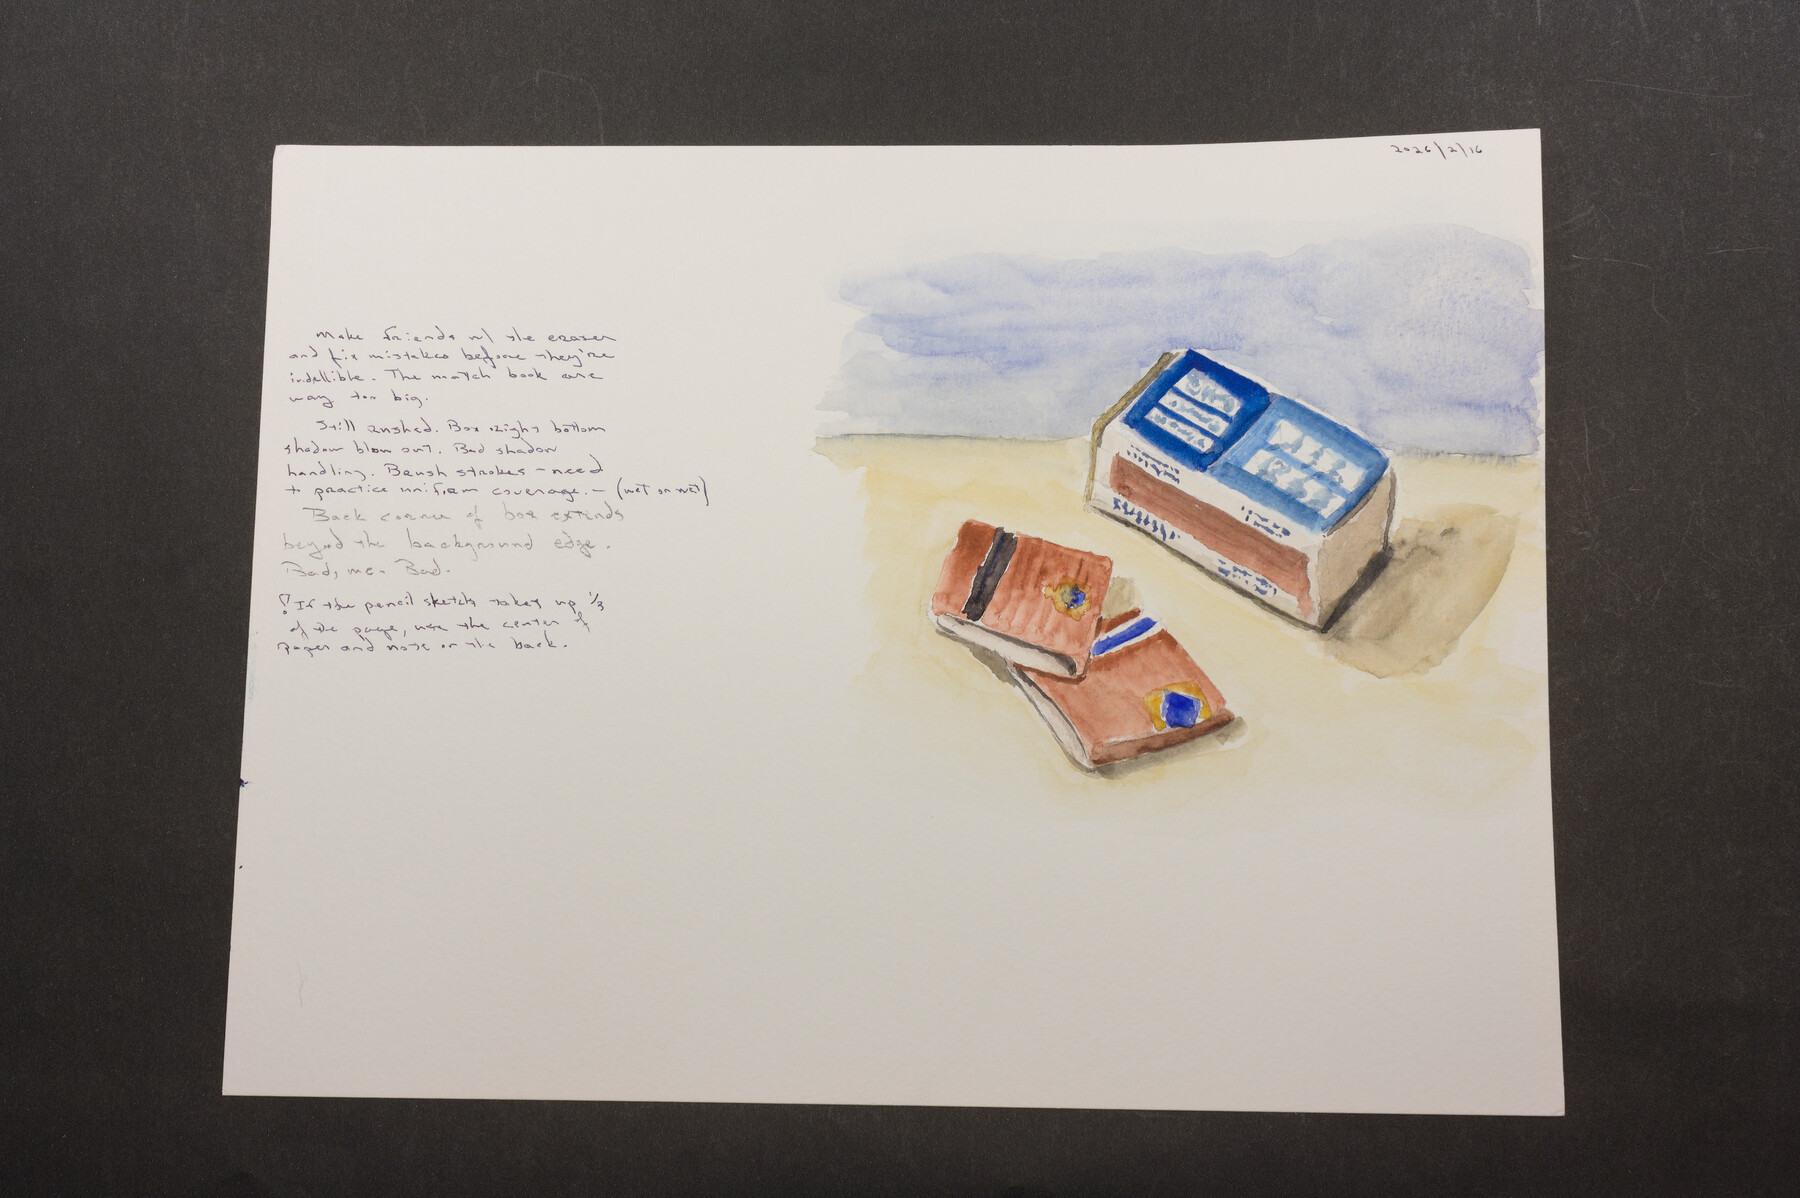 2026/2/16
Make friends w/ the eraser
and fix mistakes before they're
indellible. The match book are
way too big.
Still rushed. Box right bottom
shadow blown out. Bad shadow
handling. Brush strokes - need
to practice uniform coverage. - (wet on wet)
Back corner of box extends
beyond the background edge.
Bad, me. Bad.
! If the pencil sketch takes up 1/3
of the page, use the center of
paper and note on the back.